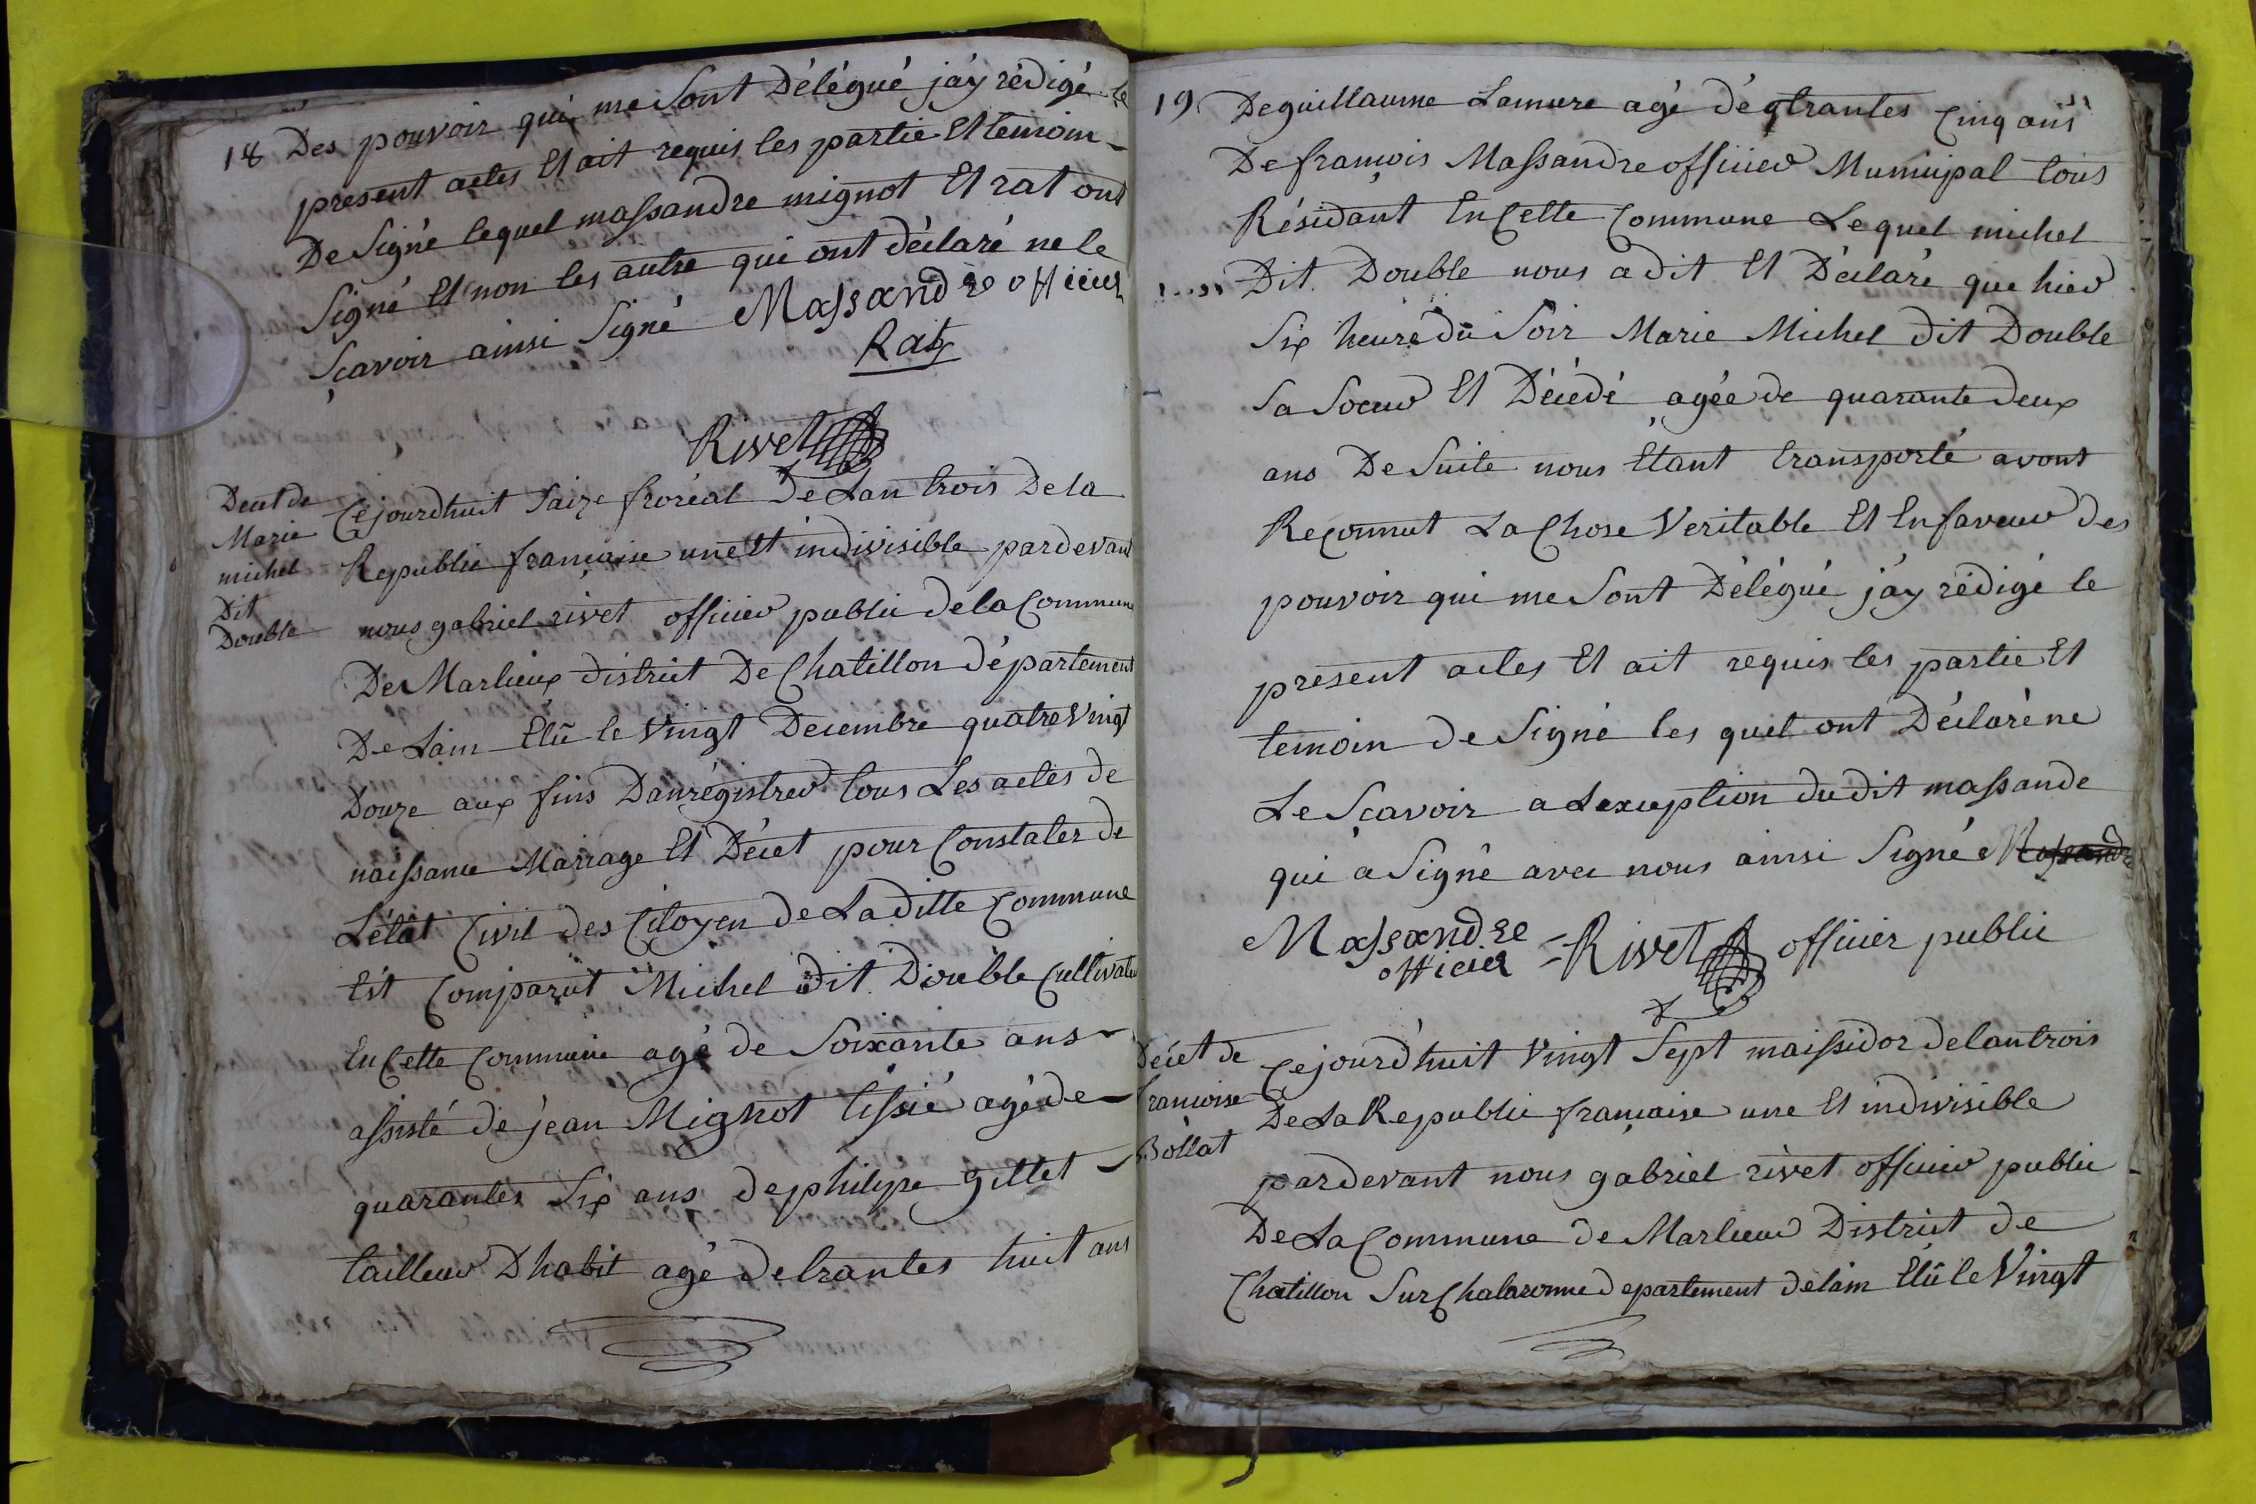 18 Des pouvoir qui me Sont Délégué j'ay rédigé le
présent actes Et ait requis les partie Et temoin
De Signé lequel massandre mignot Et rat ont
Signé Et non les autre qui ont déclaré ne le
sçavoir ainsi Signé Massandre officier
Rat
Rivet
Decet de
Marie
michel
Dit
Double
Cejourdhuit Saize froréal De Lan trois De la
Republic françaisse une Et indivisible pardevant
nous gabriel rivet officier public de la Commune
De Marlieux district De Chatillon département
De Lain Elû le Vingt Decembre quatre Vingt
Douze aux fins Danrégistrer tous Les actes de
naissance Marrage Et Décet pour Constater de
L'état Civil des Citoyen de Laditte Commune
Est Comparut Michel dit Double Cultivateur
En Cette Commune agé de Soixante ans
assisté de jean Mignot tissié agé de
quarantes Six ans de philype gillet
tailleur Dhabit agé de trantes huit ans
19 De guillaume Lamure agé dé trantes Cinq ans
De françois Massandre officier Municipal tous
Résidant En Cette Commune Lequel michel
Dit Double nous a dit Et Déclaré que hier
Six heure dû Soir Marie Michel dit Double
Sa Soeur Et Décédé agée de quarante deux
ans De Suite nous Etant transporté avont
Reconnut La Chose Veritable Et En faveur des
pouvoir qui me Sont Délégué j'ay rédigé le
présent actes Et ait requis les partie Et
temoin de Signé les quel ont Déclaré ne
Le Sçavoir a Lexception du dit massande
qui a Signé avec nous ainsi Signé Massandre
Massandre = Rivet officier public
officier
Décet de
francoise
Bollat
Cejourd'huit Vingt Sept maissidor de lan trois
De La Republic françaisse une Et indivisible
pardevant nous gabriel rivet officier public
De La Commune de Marlieu District de
Chatillon Sur Chalaronne departement de lain Elû le Vingt